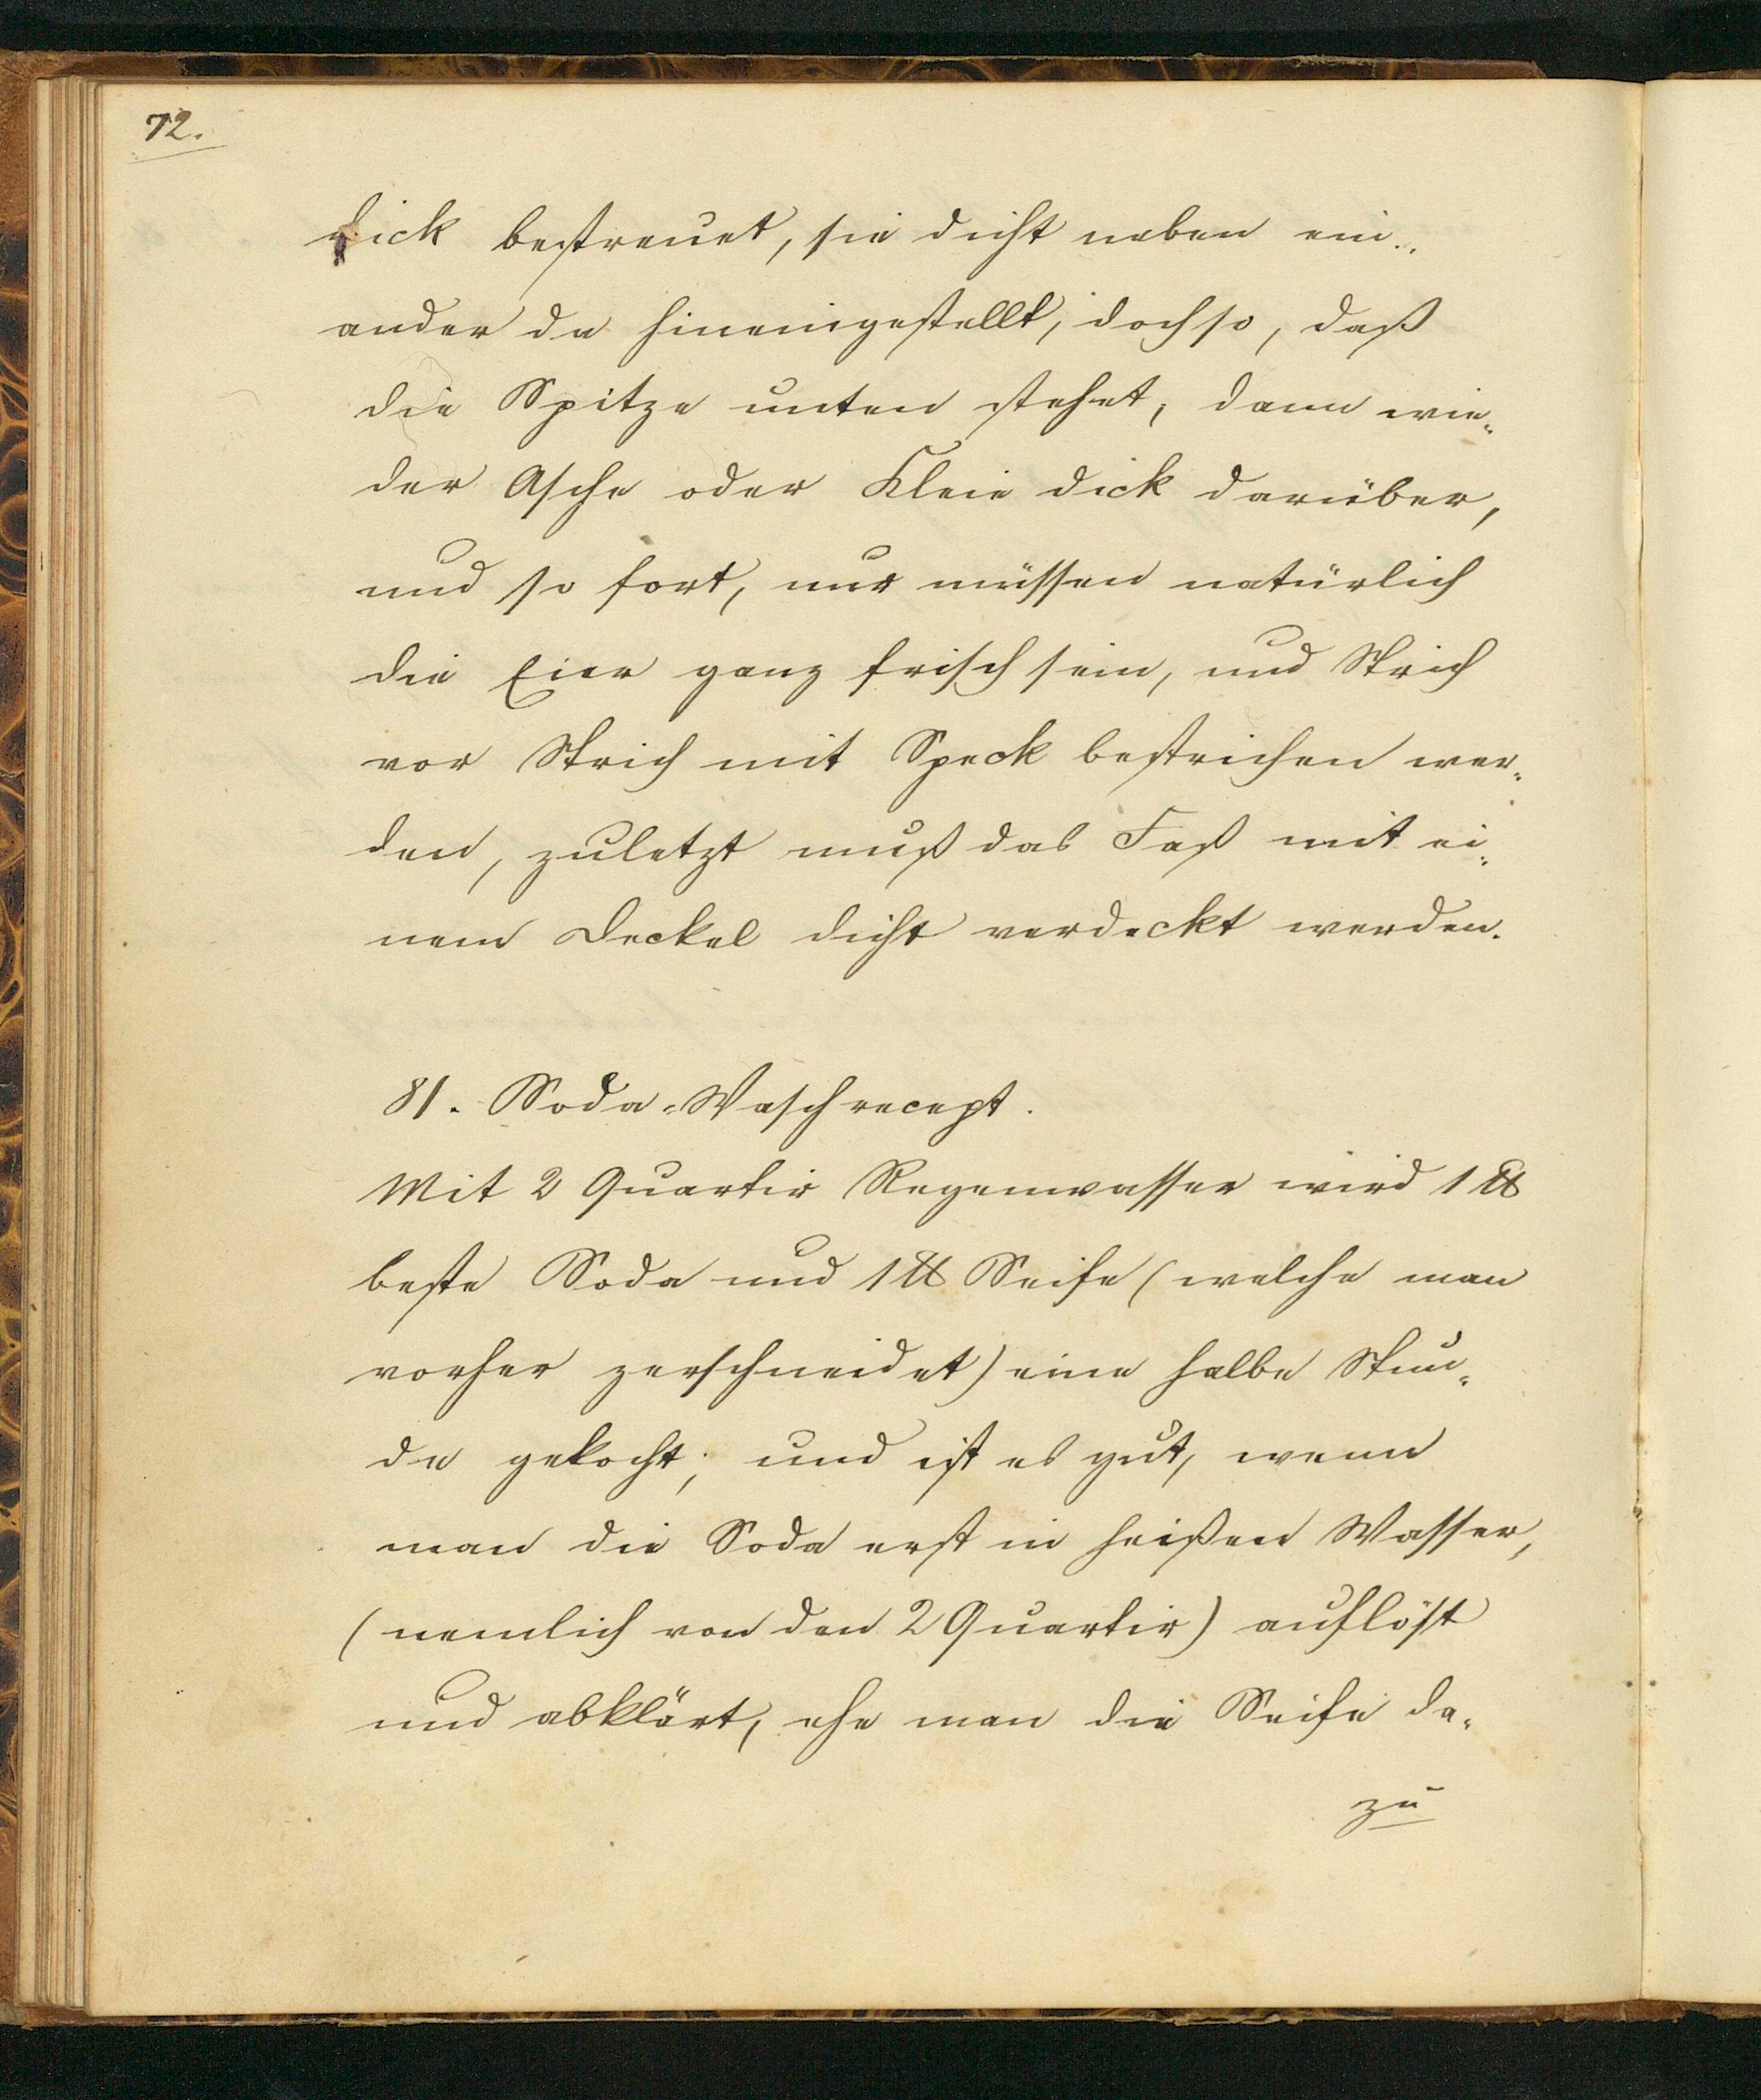 72.
dick bestreuet, sie dicht neben ein-
ander da hineingestellt, doch so, daß
die Spitze unten stehet, dann wie-
der Asche oder Kleie dick darüber,
und so fort, nur müssen natürlich
die Eier ganz frisch sein, und Strich
vor Strich mit Speck bestrichen wer-
den, zuletzt muß das Faß mit ei-
nem Deckel dicht verdeckt werden.
81. Soda-Waschrecept.
Mit 2 Quartir Regenwasser wird 1 ℔
beste Soda und 1 ℔ Seife (welche man
vorher zerschneidet) eine halbe Stun-
de gekocht; und ist es gut, wenn
man die Soda erst in heißen Wasser,
(nemlich von den 2 Quartir) auflöst
und abklärt, ehe man die Seife da-
zu